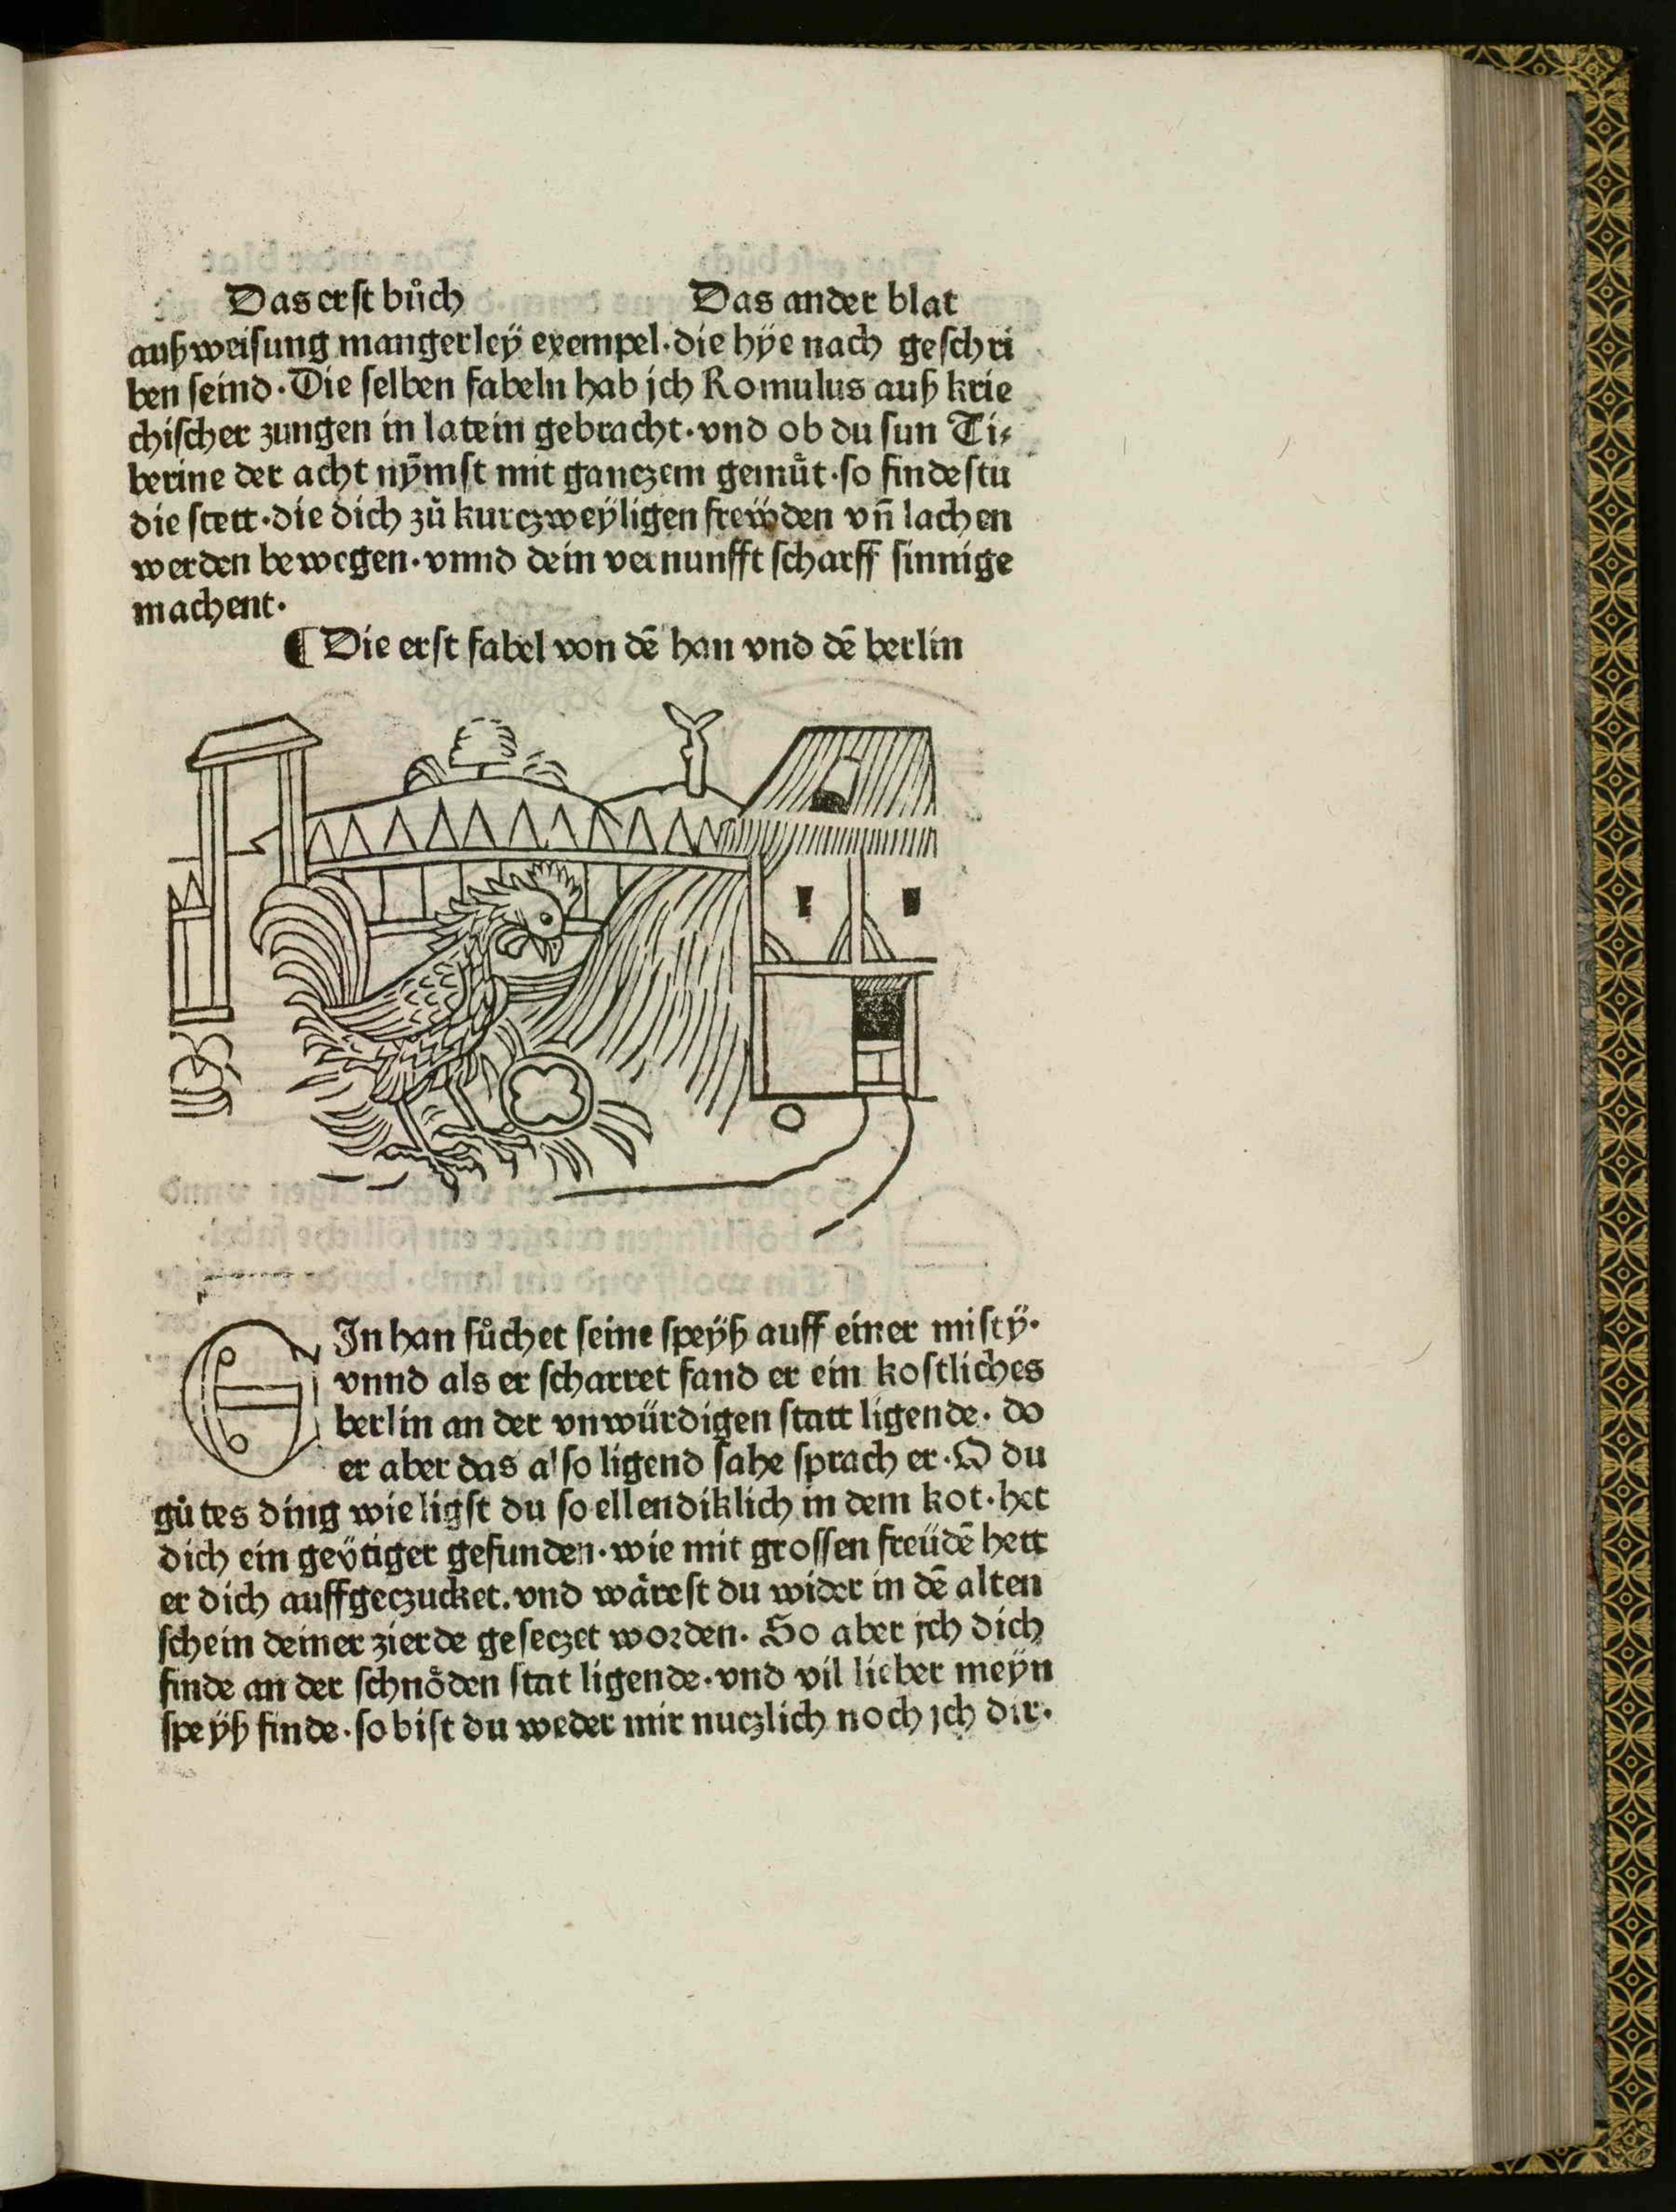 Das erst bůch Das ander blat
außweisung mangerleÿ exempel·die hÿe nach geschri
ben seind·Die selben fabeln hab jch Romulus auß krie
chischer zungen in latein gebracht·vnd ob du sun Ti⸗
berine der acht nÿmst mit ganczem gemůt·so findestu
die stett·die dich zů kurczweÿligen freẅden vñ lachen
werden bewegen·vnnd dein vernunfft scharff sinnige
machent·
¶ Die erst fabel von dē han vnd dē berlin
EIn han sůchet seine speÿß auff einer mistÿ·
vnnd als er scharret fand er ein kostliches
berlin an der vnwürdigen statt ligende· do
er aber das also ligend sahe sprach er·O du
gůtes ding wie ligst du so ellendiklich in dem kot·het
dich ein geÿtiger gefunden·wie mit grossen freüdē hett
er dich auffgeczucket.vnd wårest du wider in dē alten
schein deiner zierde geseczet worden· So aber jch dich
finde an der schnôden stat ligende·vnd vil lieber meÿn
speÿß finde·so bist du weder mir nuczlich noch jch dir·